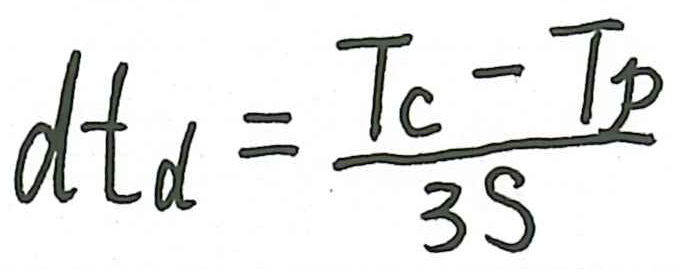 dt_d = \frac{T_c - T_p}{3S}